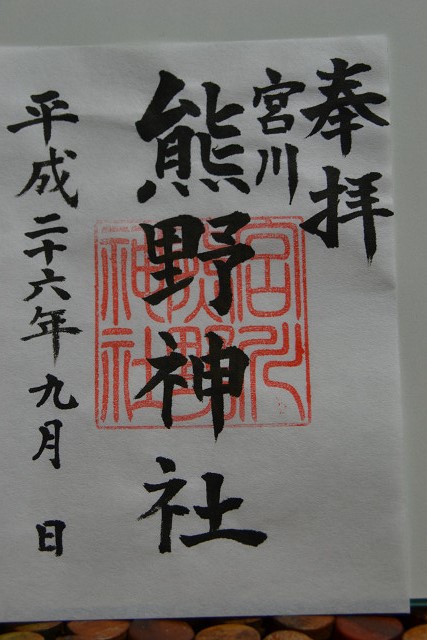 奉拝
宮川
熊野神社
宮川
熊野
神社
平成二十六年九月 日